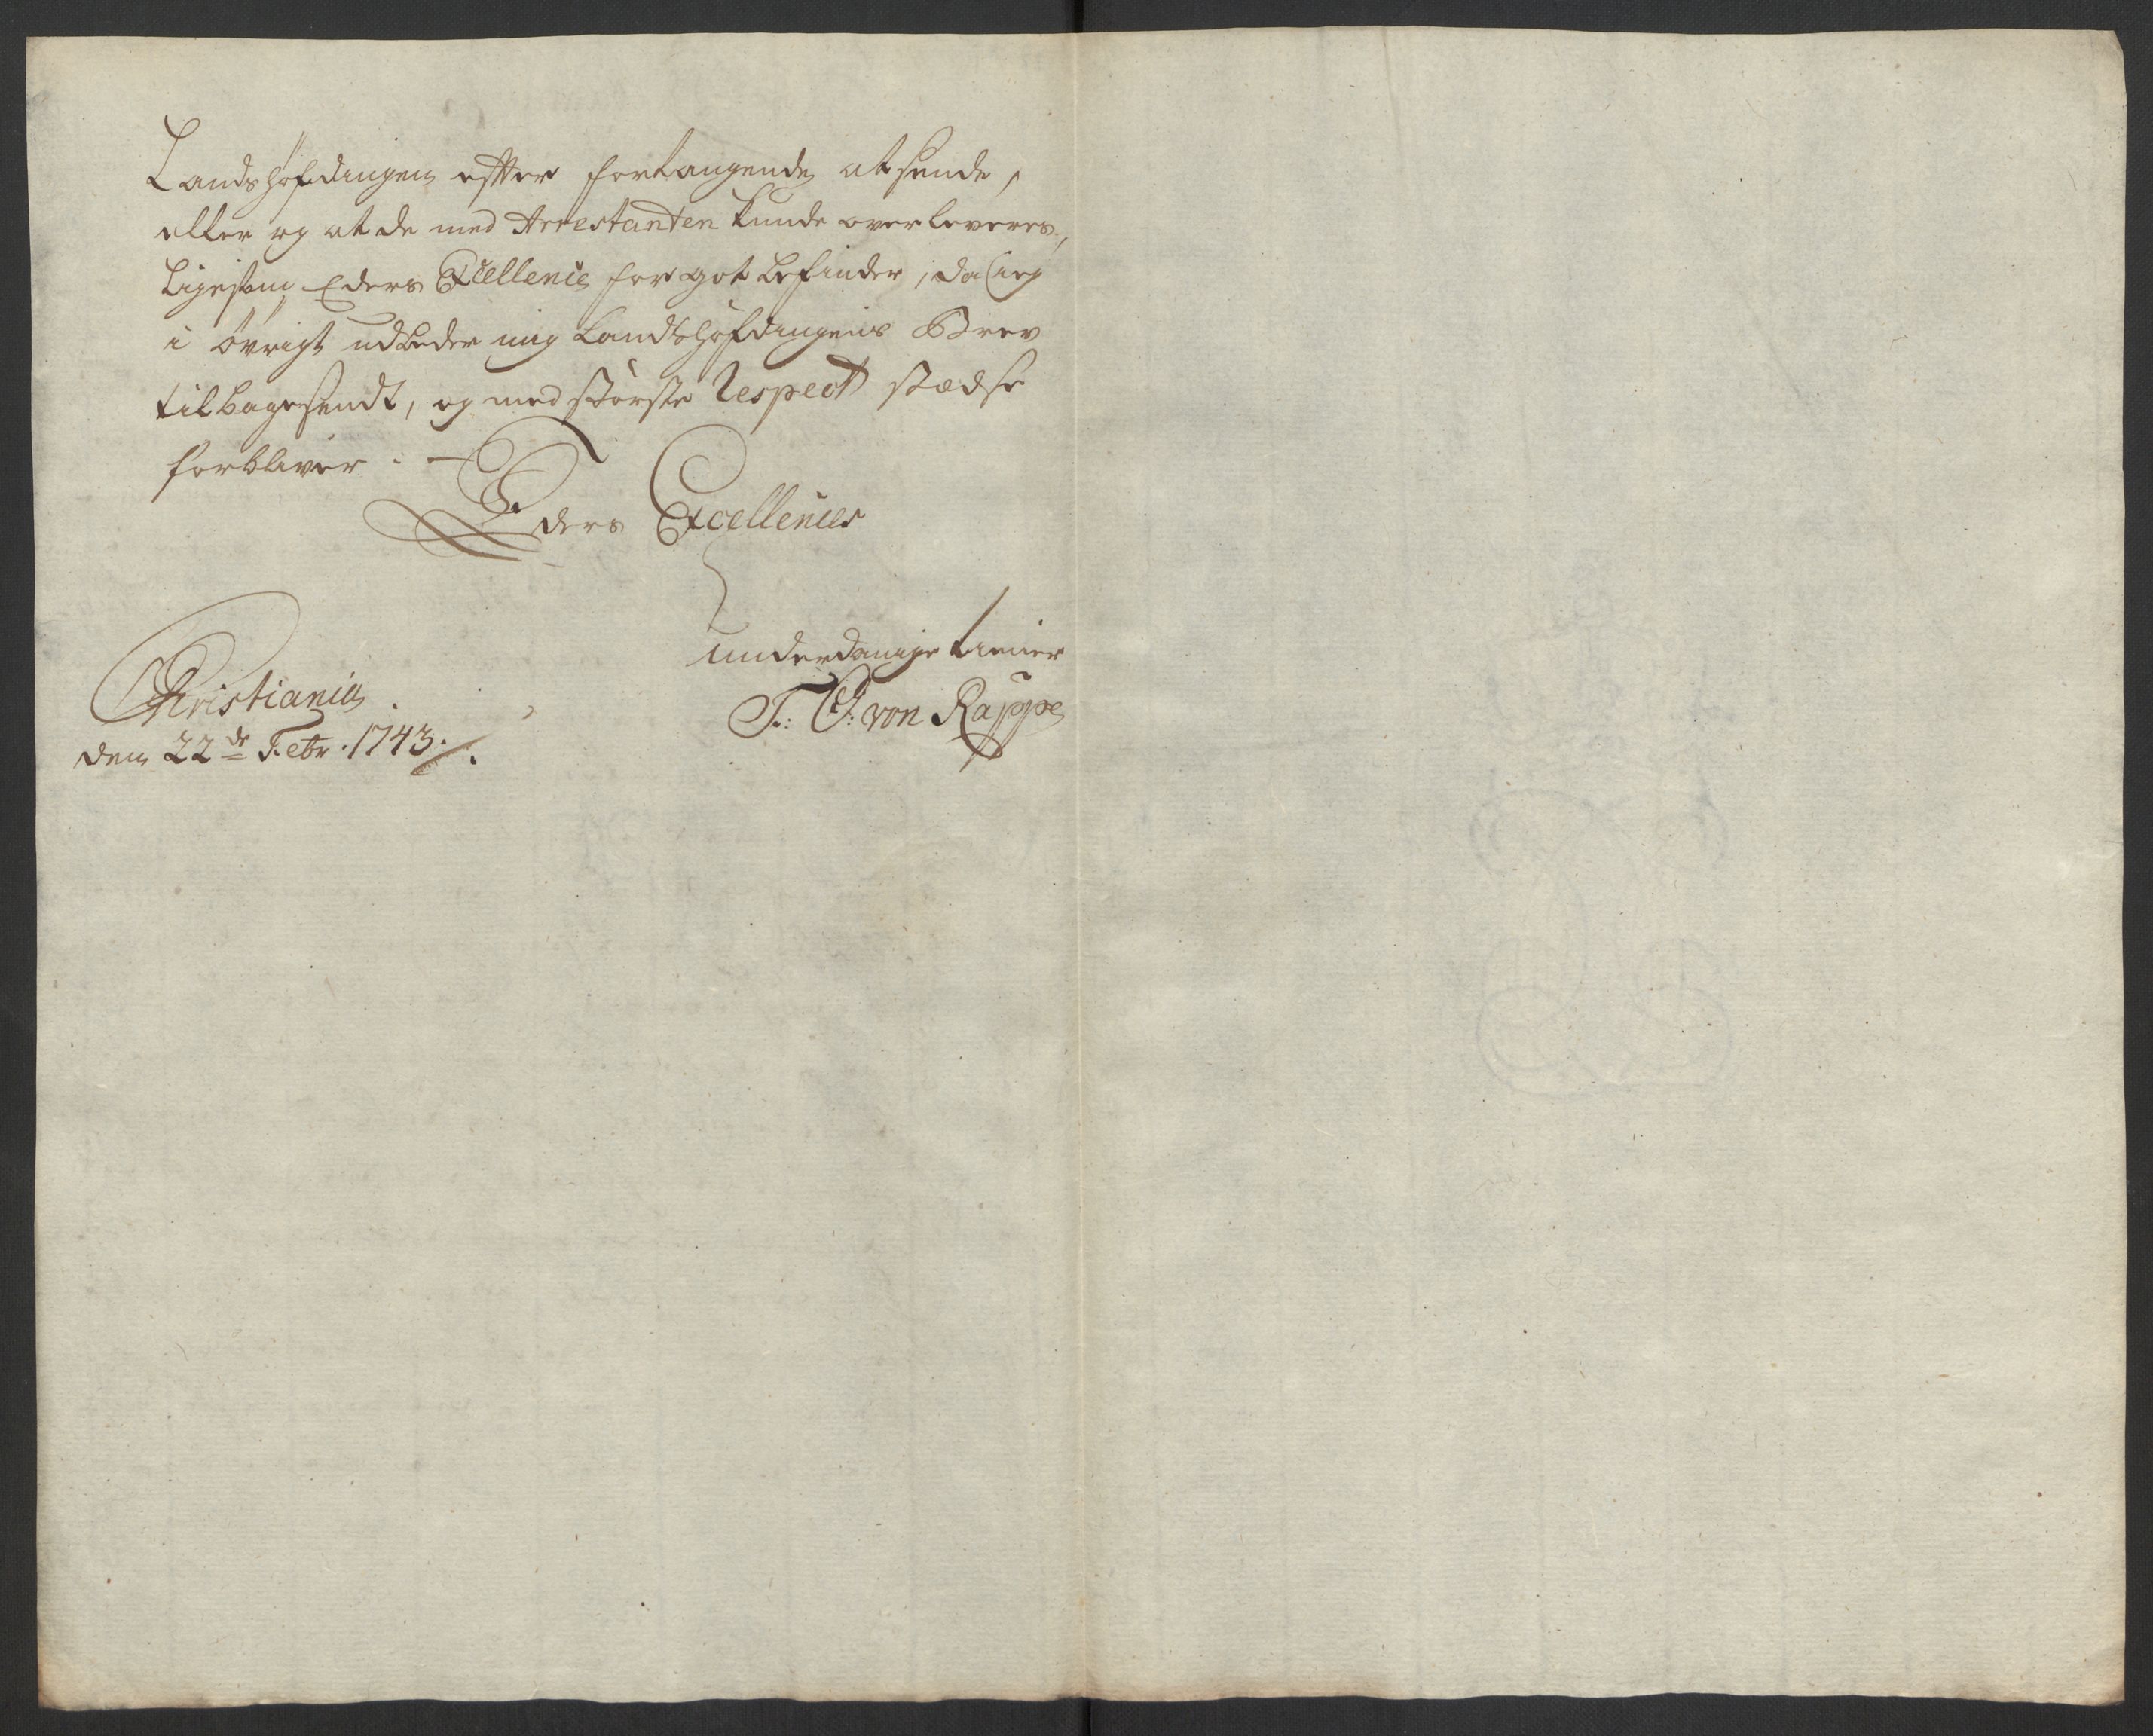 Landshøfdingen efter forlangende at sende,
eller og at de med Arrestanten kunde overleveres,
ligesom Eders Excellence for got befinder, da ieg
i øvrigt udbeder mig Landshøfdingens Brev
tilbagesendt, og med største Respect stædse
forbliver.
Eders Excellences
underdanige tiener
Christiania
T: C: von Rappe
den 22de Febr. 1743.